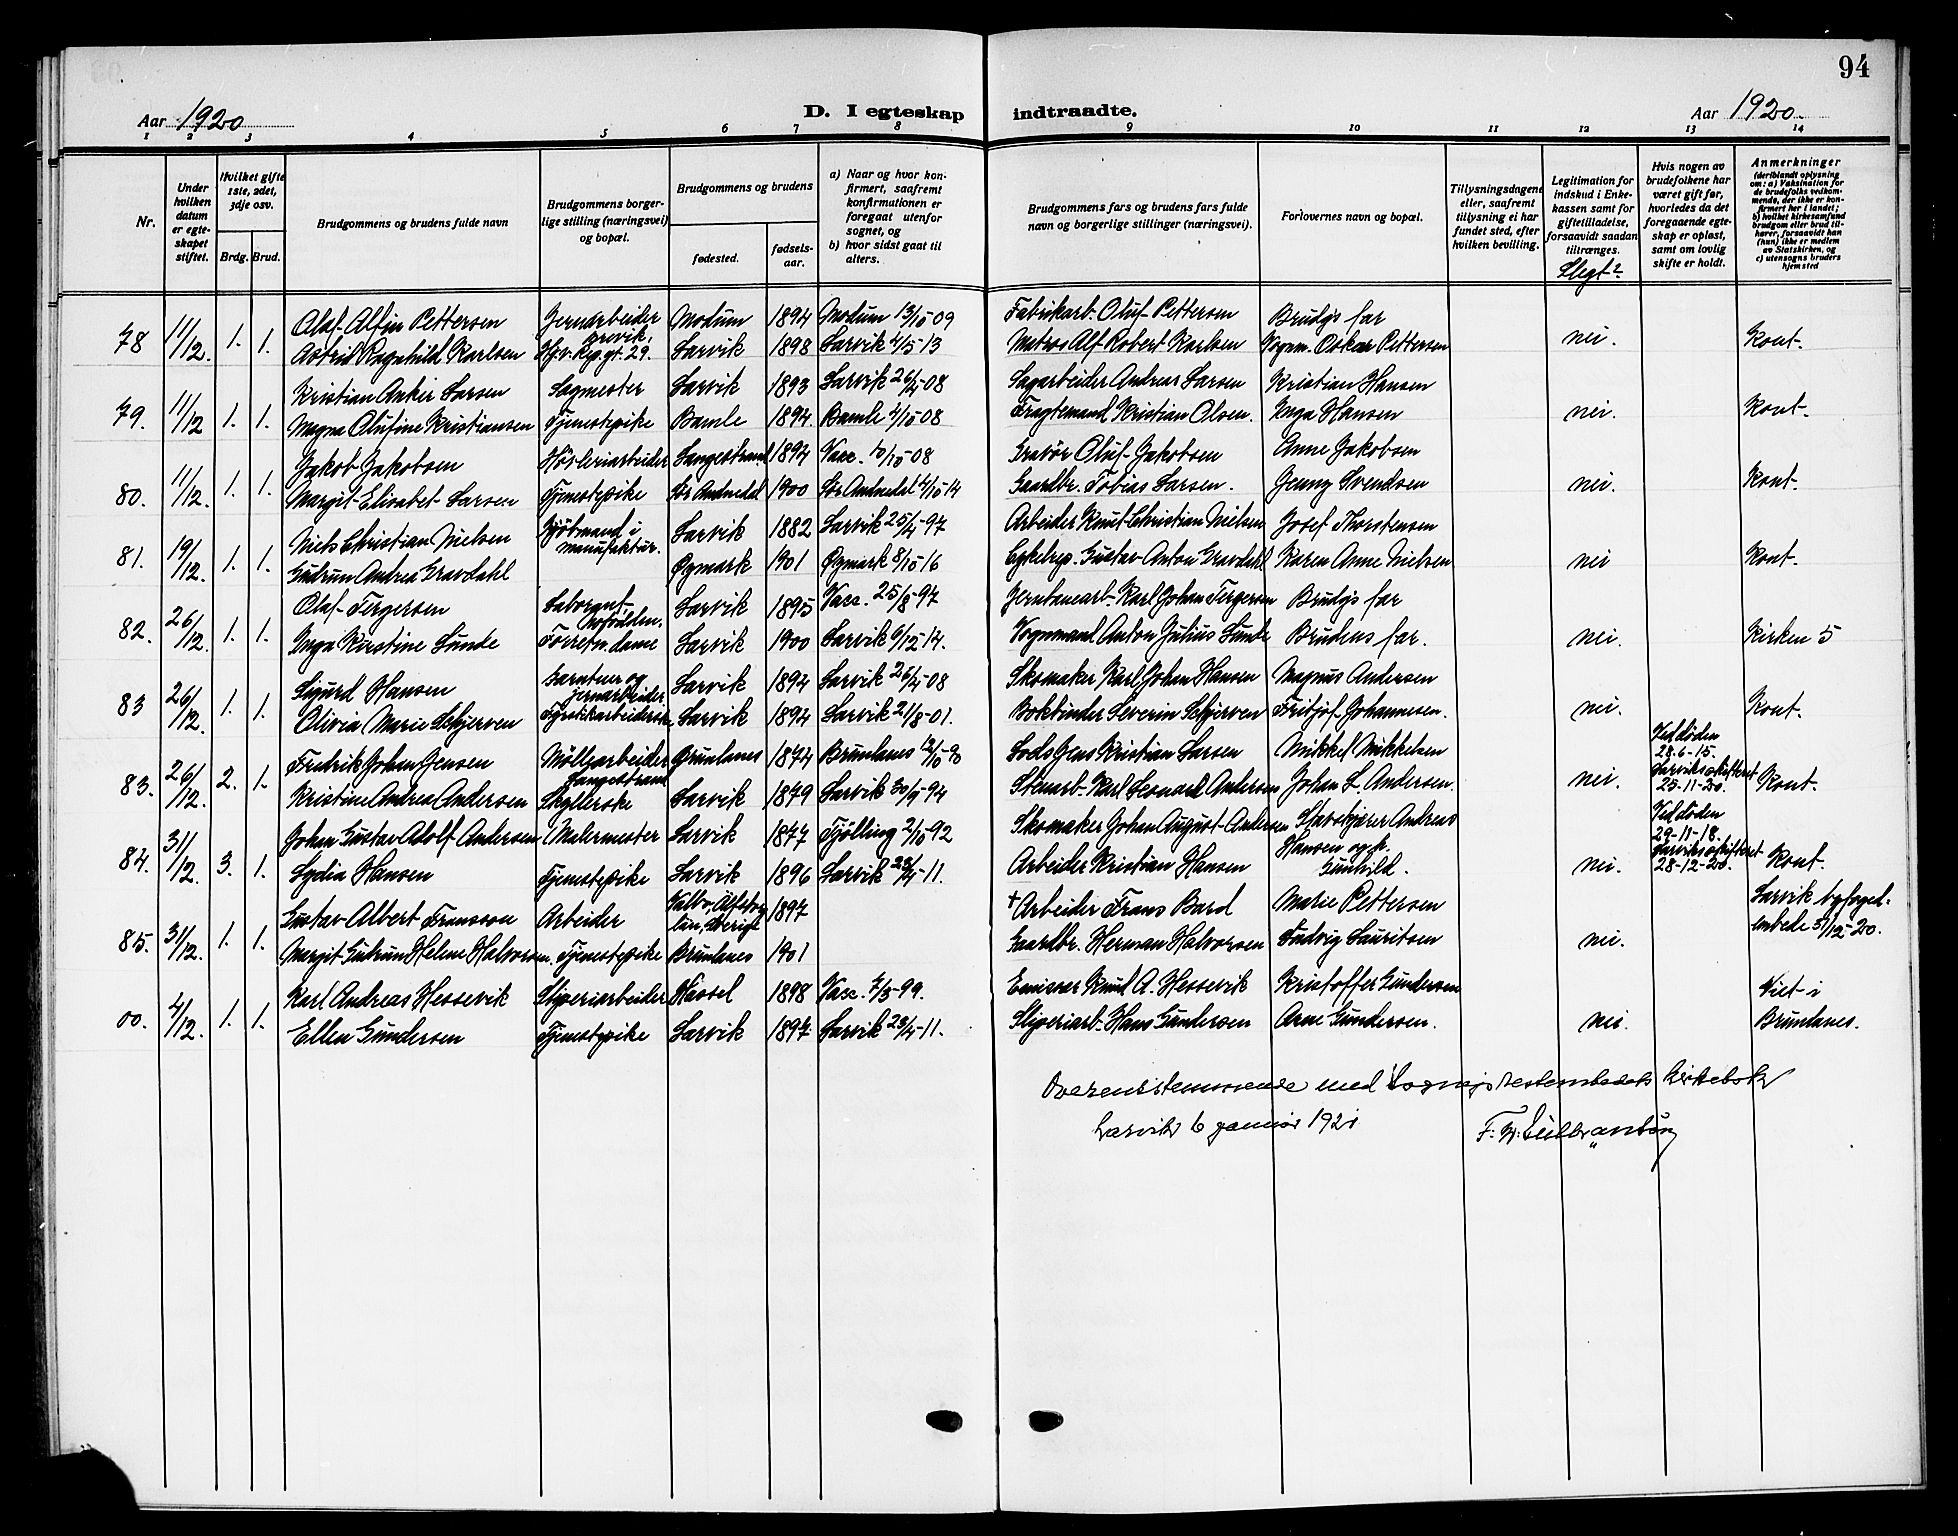 94
Aar 1920 D. I egteskap indtraadte. Aar 1920.
1 2 3 4 5 6 7 8 9 10 11 12 13 14
Nr.
Under hvilken datum er egte-skapet stiftet.
Hvilket gifte 1ste, 2det, 3dje osv.
Brdg. Brud.
Brudgommens og brudens fulde navn
Brudgommens borger-lige stilling (næringsvei) og bopæl.
Brudgommens og brudens
fødested.
fødsels-aar.
a) Naar og hvor kon-firmert, saafremt konfirmationen er foregaat utenfor sognet, og
b) hvor sidst gaat til alters.
Brudgommens fars og brudens fars fulde navn og borgerlige stillinger (næringsvei).
Forlovernes navn og bopæl.
Tillysningsdagene eller, saafremt tillysning ei har fundet sted, efter hvilken bevilling.
Legitimation for indskud i Enke-kassen samt for giftetilladelse, forsaavidt saadan tiltrænges.
Slegt?
Hvis nogen av brudefolkene har været gift før, hvorledes da det foregaaende egte-skap er opløst, samt om lovlig skifte er holdt.
Anmerkninger (deriblandt oplysning om: a) Vaksination for de brudefolks vedkom-mende, der ikke er kon-firmert her i landet; b) hvilket kirkesamfund brudgom eller brud til-hører, forsaavidt han (hun) ikke er medlem av Statskirken, og c) utensogns bruders hjemsted
78 11/12. 1. 1. Olaf Alfin Pettersen Jernarbeider Brevik, Modum 1894 Modum 13/10 09 Fabrikarb. Oluf Pettersen Brudgs far
Astrid Ragnhild Karlsen Hj.v. Reg.gt. 29. Larvik 1898 Larvik 4/5-13 Matros Alf Robert Karlsen Vognm. Oskar Pettersen nei. Kont.
79. 11/12 1. 1. Kristian Anker Larsen Sagmester Larvik 1893 Larvik 26/4-08 Sagarbeider Andreas Larsen Kristian Hansen
Magna Olufine Kristiansen Tjenestepike Bamle 1894. Bamle 4/10-08 Fragtemand Kristian Olsen. Inga Hansen nei. Kont.
80. 11/12. 1. 1. Jakob Jakobsen Høvleriarbeider Langestrand 1894 Vacc. 10/10-08 Gravør Oluf Jakobsen Anne Jakobsen
Margit Elisabet Larsen Tjenestepike Sør Audnedal 1900 Sør Audnedal 4/10-14 Gaardbr. Tobias Larsen. Jenny Svendsen nei. Kont.
81. 19/12. 1. 1. Niels Christian Nielsen Kjøbmand i manufaktur. Larvik 1882 Larvik 25/4-97 Arbeider Knut Christian Nielsen Josef Thorstensen
Gudrun Andrea Gravdahl Øymark 1901 Øymark 8/10-16 Cykelrep. Gustav Anton Gravdahl Karen Anne Nielsen nei Kont.
82. 26/12. 1. 1. Olaf Tergersen Laborant, Larvik 1895 Vacc. 25/8-97 Jernbanearb. Karl Johan Tergersen Brudgs far
Inga Kirstine Lunde Forretn.dame Larvik 1900 Larvik 4/10-14. Vognmand Anton Julius Lunde Brudens far. nei. Kirken 5
83 26/12. 1. 1. Sigurd Hansen Gartner og jernarbeider Larvik 1894 Larvik 26/4-08 Skomaker Karl Johan Hansen Magnus Andersen
Olivia Marie Schjerven Fyrstikkarbeiderske Larvik 1894 Larvik 21/8-01. Bokbinder Severin Schjerven Fritjof Johannesen. nei. Kont.
83. 26/12. 2. 1. Fredrik Johan Jensen Møllearbeider Langestrand Brunlanes 1874 Brunlanes 12/10-90 Lods Jens Kristian Larsen Mikkel Mikkelsen Ved døden 28-6-15.
Kristine Andrea Andersen Skyllerske Larvik 1879 Larvik 30/9-94 Stenarb. Karl Leonard Andersen Johan L. Andersen. nei. Larvik skifteret 25-11-20. Kont.
84. 31/12. 3. 1. Johan Gustav Adolf Andersen Malermester Larvik 1877 Tjølling 2/10-92 Skomaker Johan August Andersen Stavskjærer Andreas Ved døden 29-11-18.
Lydia Hansen Tjenestepike Larvik 1896 Larvik 23/4-11. Arbeider Kristian Hansen Hansen og h. Gunhild. nei. Larvik skifteret 28-12-20. Kont.
85. 31/12. 1. 1. Gustav Albert Fransson Arbeider Valbo, Älfsborg län, Sverige 1897 † Arbeider Frans Bard Marie Pettersen Larvik byfoged-
Margit Gudrun Helene Halvorsen. Tjenestepike Brunlanes 1901 Gaardbr. Herman Halvorsen Ludvig Lauritsen nei. embede 31/12-20.
00. 4/12. 1. 1. Karl Andreas Hessevik Sliperiarbeider Hassel 1898 Vacc. 7/3-99. Emissær Knud A. Hessevik Kristoffer Gundersen Viet i
Ellen Gundersen Tjenestepike Larvik 1897 Larvik 23/4-11. Sliperiarb. Hans Gundersen Arne Gundersen. nei. Brunlanes.
Overensstemmende med Sogneprestembedets kirkebok
Larvik 6 januar 1921 F. W. Gulbranson